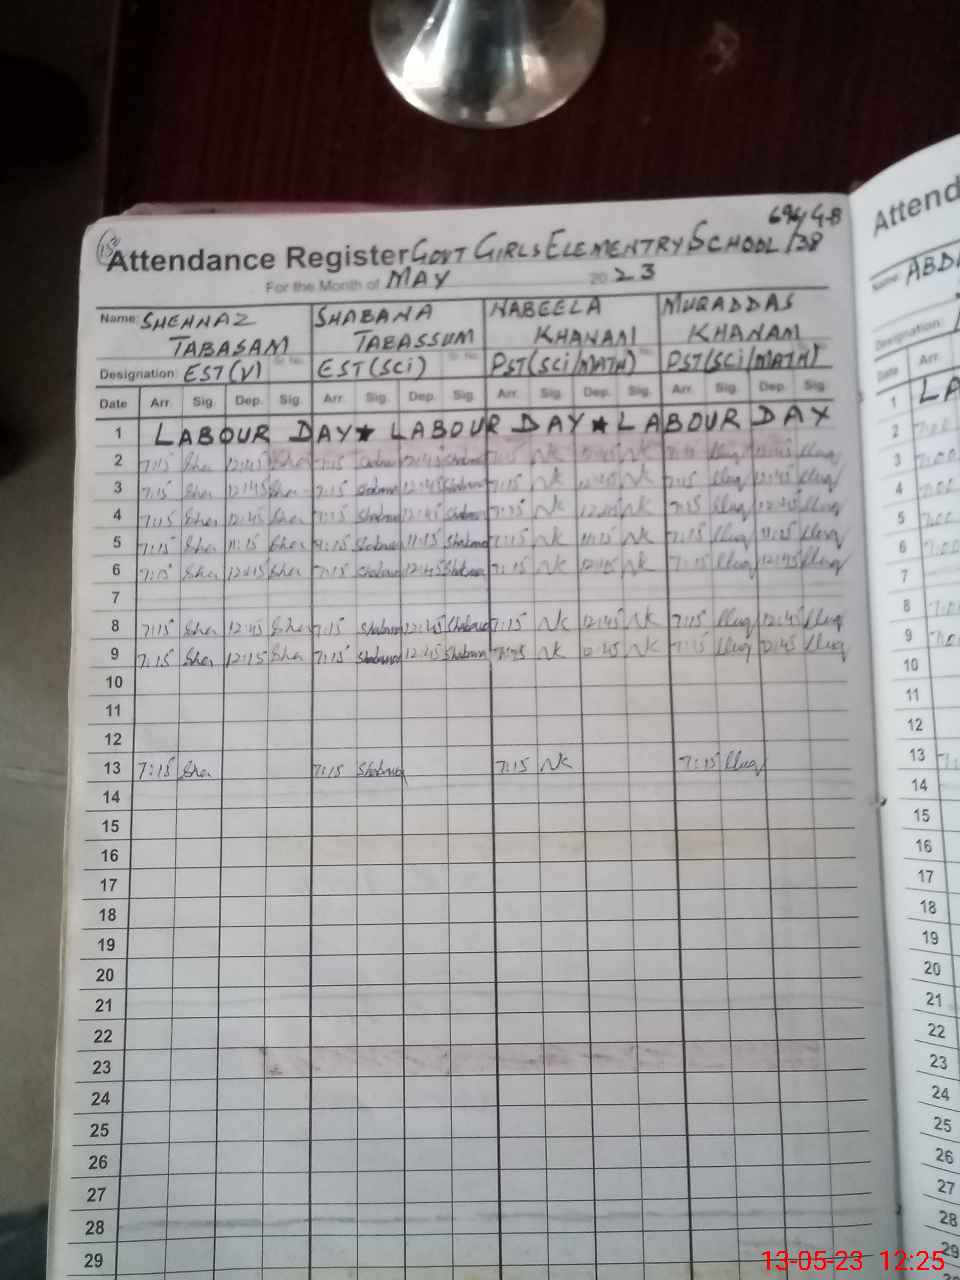 696/G-B
Attendance Register GOVT GIRLS ELEMENTRY SCHOOL /38
For the Month of MAY 2023
Name: SHEHNAZ TABASAM SHABANA TABASSUM NABEELA KHANAM MUQADDAS KHANAM
Designation: EST(V) EST(SCi) PST(SCi/MATH) PST(SCi/MATH)
Date Arr. Sig. Dep. Sig. Arr. Sig. Dep. Sig. Arr. Sig. Dep. Sig. Arr. Sig. Dep. Sig.
1 LABOUR DAY ★ LABOUR DAY ★ LABOUR DAY
2 7:15 Sha 12:45 Sha 7:15 12:45 7:15 NK 12:45 NK 7:15 12:45
3 7:15 Sha 12:45 Sha 7:15 12:45 7:15 NK 12:45 NK 7:15 12:45
4 7:15 Sha 12:45 Sha 7:15 12:45 7:15 NK 12:45 NK 7:15 12:45
5 7:15 Sha 11:15 Sha 7:15 11:15 7:15 NK 11:15 NK 7:15 11:15
6 7:15 Sha 12:45 Sha 7:15 12:45 7:15 NK 12:45 NK 7:15 12:45
7
8 7:15 Sha 12:45 Sha 7:15 12:45 7:15 NK 12:45 NK 7:15 12:45
9 7:15 Sha 12:15 Sha 7:15 12:45 7:15 NK 12:45 NK 7:15 12:45
10
11
12
13 7:15 Sha 7:15 7:15 NK 7:15
14
15
16
17
18
19
20
21
22
23
24
25
26
27
28
29
Attend
Name: ABD
Designation:
Date Arr.
1 LA
2 7:00
3 7:00
4 7:00
5 7:00
6 7:00
7
8 7:00
9 7:00
10
11
12
13
14
15
16
17
18
19
20
21
22
23
24
25
26
27
28
29
13-05-23 12:25